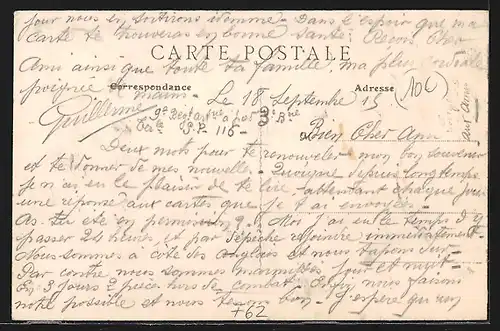 pour nous en sortirons idemme - Dans l'espoir que ma
carte te trouveras en bonne santé. Reçois Cher
CARTE POSTALE
Ami ainsi que toute ta famille, ma plus cordiale
poignée
Correspondance
Adresse
main -
Le 18 Septembre 15
(10C)
Guillerme
S.P. 116 -
Bien Cher Ami
Deux mots pour te renouveler mon bon souvenir
et te donner de mes nouvelles - Quoique depuis longtemps
je n'ai eu le plaisir de te lire, attendant chaque jour
une réponse aux cartes que je t'ai envoyées -
As-tu été en permission ? Moi j'ai eu le temps d'y
passer 24 heures, et par dépêche rejoindre immédiatement -
Nous sommes à côté des anglais et nous tapons dur -
Par contre nous sommes marmités jour et nuit -
En 3 jours 2 pièces hors de combat. Enfin nous faisons
notre possible et nous tenons bon - J'espère que
+62